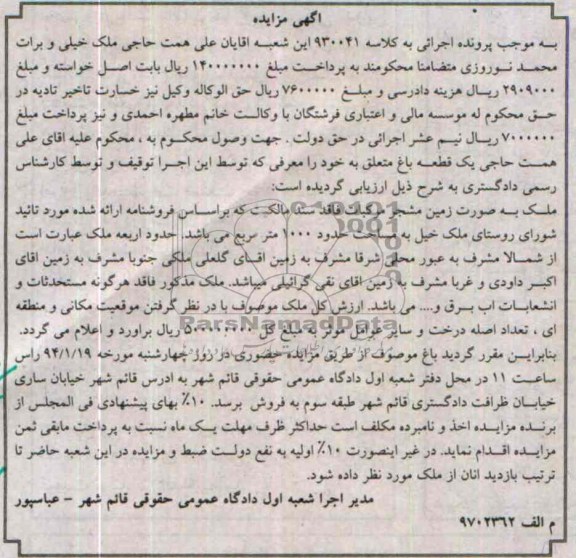 آگهی مزایده
به موجب پرونده اجرائی به کلاسه ۹۳۰۰۴۱ این شعبه آقایان علی همت حاجی ملک خیلی و برات
محمد نوروزی متضامنا محکومند به پرداخت مبلغ ۱۴۰۰۰۰۰۰۰ ریال بابت اصل خواسته و مبلغ
۲۹۰۹۰۰۰ ریال هزینه دادرسی و مبلغ ۷۶۰۰۰۰۰ ریال حق الوکاله وکیل نیز خسارت تاخیر تادیه در
حق محکوم له موسسه مالی و اعتباری فرشتگان با وکالت خانم مطهره احمدی و نیز پرداخت مبلغ
۷۰۰۰۰۰۰ ریال نیم عشر اجرائی در حق دولت . جهت وصول محکوم به ، محکوم علیه آقای علی
همت حاجی یک قطعه باغ متعلق به خود را معرفی که توسط این اجرا توقیف و توسط کارشناس
رسمی دادگستری به شرح ذیل ارزیابی گردیده است:
ملک به صورت زمین مشجر مرکبات فاقد سند مالکیت که براساس فروشنامه ارائه شده مورد تائید
شورای روستای ملک خیل به مساحت حدود ۱۰۰۰ متر مربع می باشد. حدود اربعه ملک عبارت است
از شمالا مشرف به عبور محلی شرقا مشرف به زمین آقای گلعلی ملکی جنوبا مشرف به زمین آقای
اکبر داودی و غربا مشرف به زمین آقای نقی گرائیلی میباشد. ملک مذکور فاقد هرگونه مستحدثات و
انشعابات آب برق و.... می باشد. ارزش کل ملک موصوف با در نظر گرفتن موقعیت مکانی و منطقه
ای ، تعداد اصله درخت و سایر عوامل موثر به مبلغ کل ریال براورد و اعلام می گردد.
بنابراین مقرر گردید باغ موصوف از طریق مزایده حضوری در روز چهارشنبه مورخه ۹۴/۱/۱۹ راس
ساعت ۱۱ در محل دفتر شعبه اول دادگاه عمومی حقوقی قائم شهر به ادرس قائم شهر خیابان ساری
خیابان ظرافت دادگستری قائم شهر طبقه سوم به فروش برسد. ۱۰٪ بهای پیشنهادی فی المجلس از
برنده مزایده اخذ و نامبرده مکلف است حداکثر ظرف مهلت یک ماه نسبت به پرداخت مابقی ثمن
مزایده اقدام نماید. در غیر اینصورت ۱۰٪ اولیه به نفع دولت ضبط و مزایده در این شعبه حاضر تا
ترتیب بازدید انان از ملک مورد نظر داده شود.
مدیر اجرا شعبه اول دادگاه عمومی حقوقی قائم شهر – عباسپور
م الف ۹۷۰۲۳۶۲
ParsNamadData